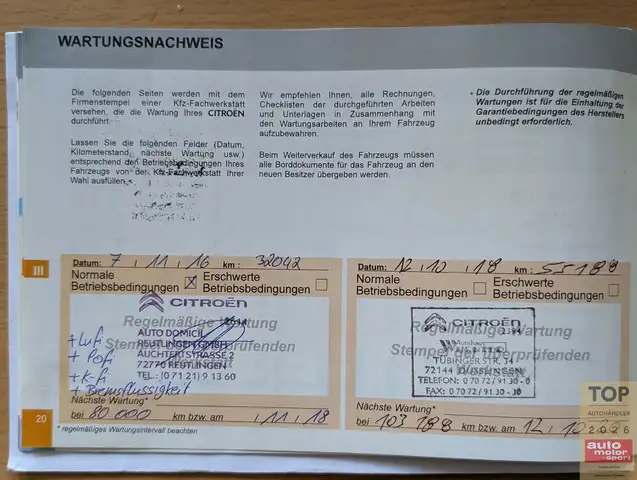 WARTUNGSNACHWEIS
Die folgenden Seiten werden mit dem
Firmenstempel einer Kfz-Fachwerkstatt
versehen, die die Wartung Ihres CITROËN
durchführt.
Lassen Sie die folgenden Felder (Datum,
Kilometerstand, nächste Wartung usw.)
entsprechend den Betriebsbedingungen Ihres
Fahrzeugs von der Kfz-Fachwerkstatt Ihrer
Wahl ausfüllen.
Wir empfehlen Ihnen, alle Rechnungen,
Checklisten der durchgeführten Arbeiten
und Unterlagen in Zusammenhang mit
den Wartungsarbeiten an Ihrem Fahrzeug
aufzubewahren.
Beim Weiterverkauf des Fahrzeugs müssen
alle Borddokumente für das Fahrzeug an
den neuen Besitzer übergeben werden.
• Die Durchführung der regelmäßigen
Wartungen ist für die Einhaltung der
Garantiebedingungen des Herstellers
unbedingt erforderlich.
III
Datum: 7 / 11 / 16 km: 32042
Normale Betriebsbedingungen X
Erschwerte Betriebsbedingungen
CITROËN
Regelmäßige Wartung
Stempel der überprüfenden
AUTO DOMICIL
REUTLINGEN GMBH
AUCHTERTSTRASSE 2
72770 REUTLINGEN
TEL.: (0 71 21) 9 13 60
+ Lufi
+ Pofi
+ K-fi
+ Bremsflüssigkeit
Nächste Wartung*
bei 80.000 km bzw. am / 11 / 18
Datum: 12 / 10 / 18 km: 55188
Normale Betriebsbedingungen
Erschwerte Betriebsbedingungen
CITROËN
Regelmäßige Wartung
Stempel der überprüfenden
Autohaus
TÜBINGER STR. 34
72144 DUSSLINGEN
TELEFON: 0 70 72 / 91 30 - 0
FAX: 0 70 72 / 91 30 - 30
Nächste Wartung*
bei 103 188 km bzw. am 12 / 10
20
* regelmäßiges Wartungsintervall beachten
TOP
AUTOHÄNDLER
2026
auto
motor
sport